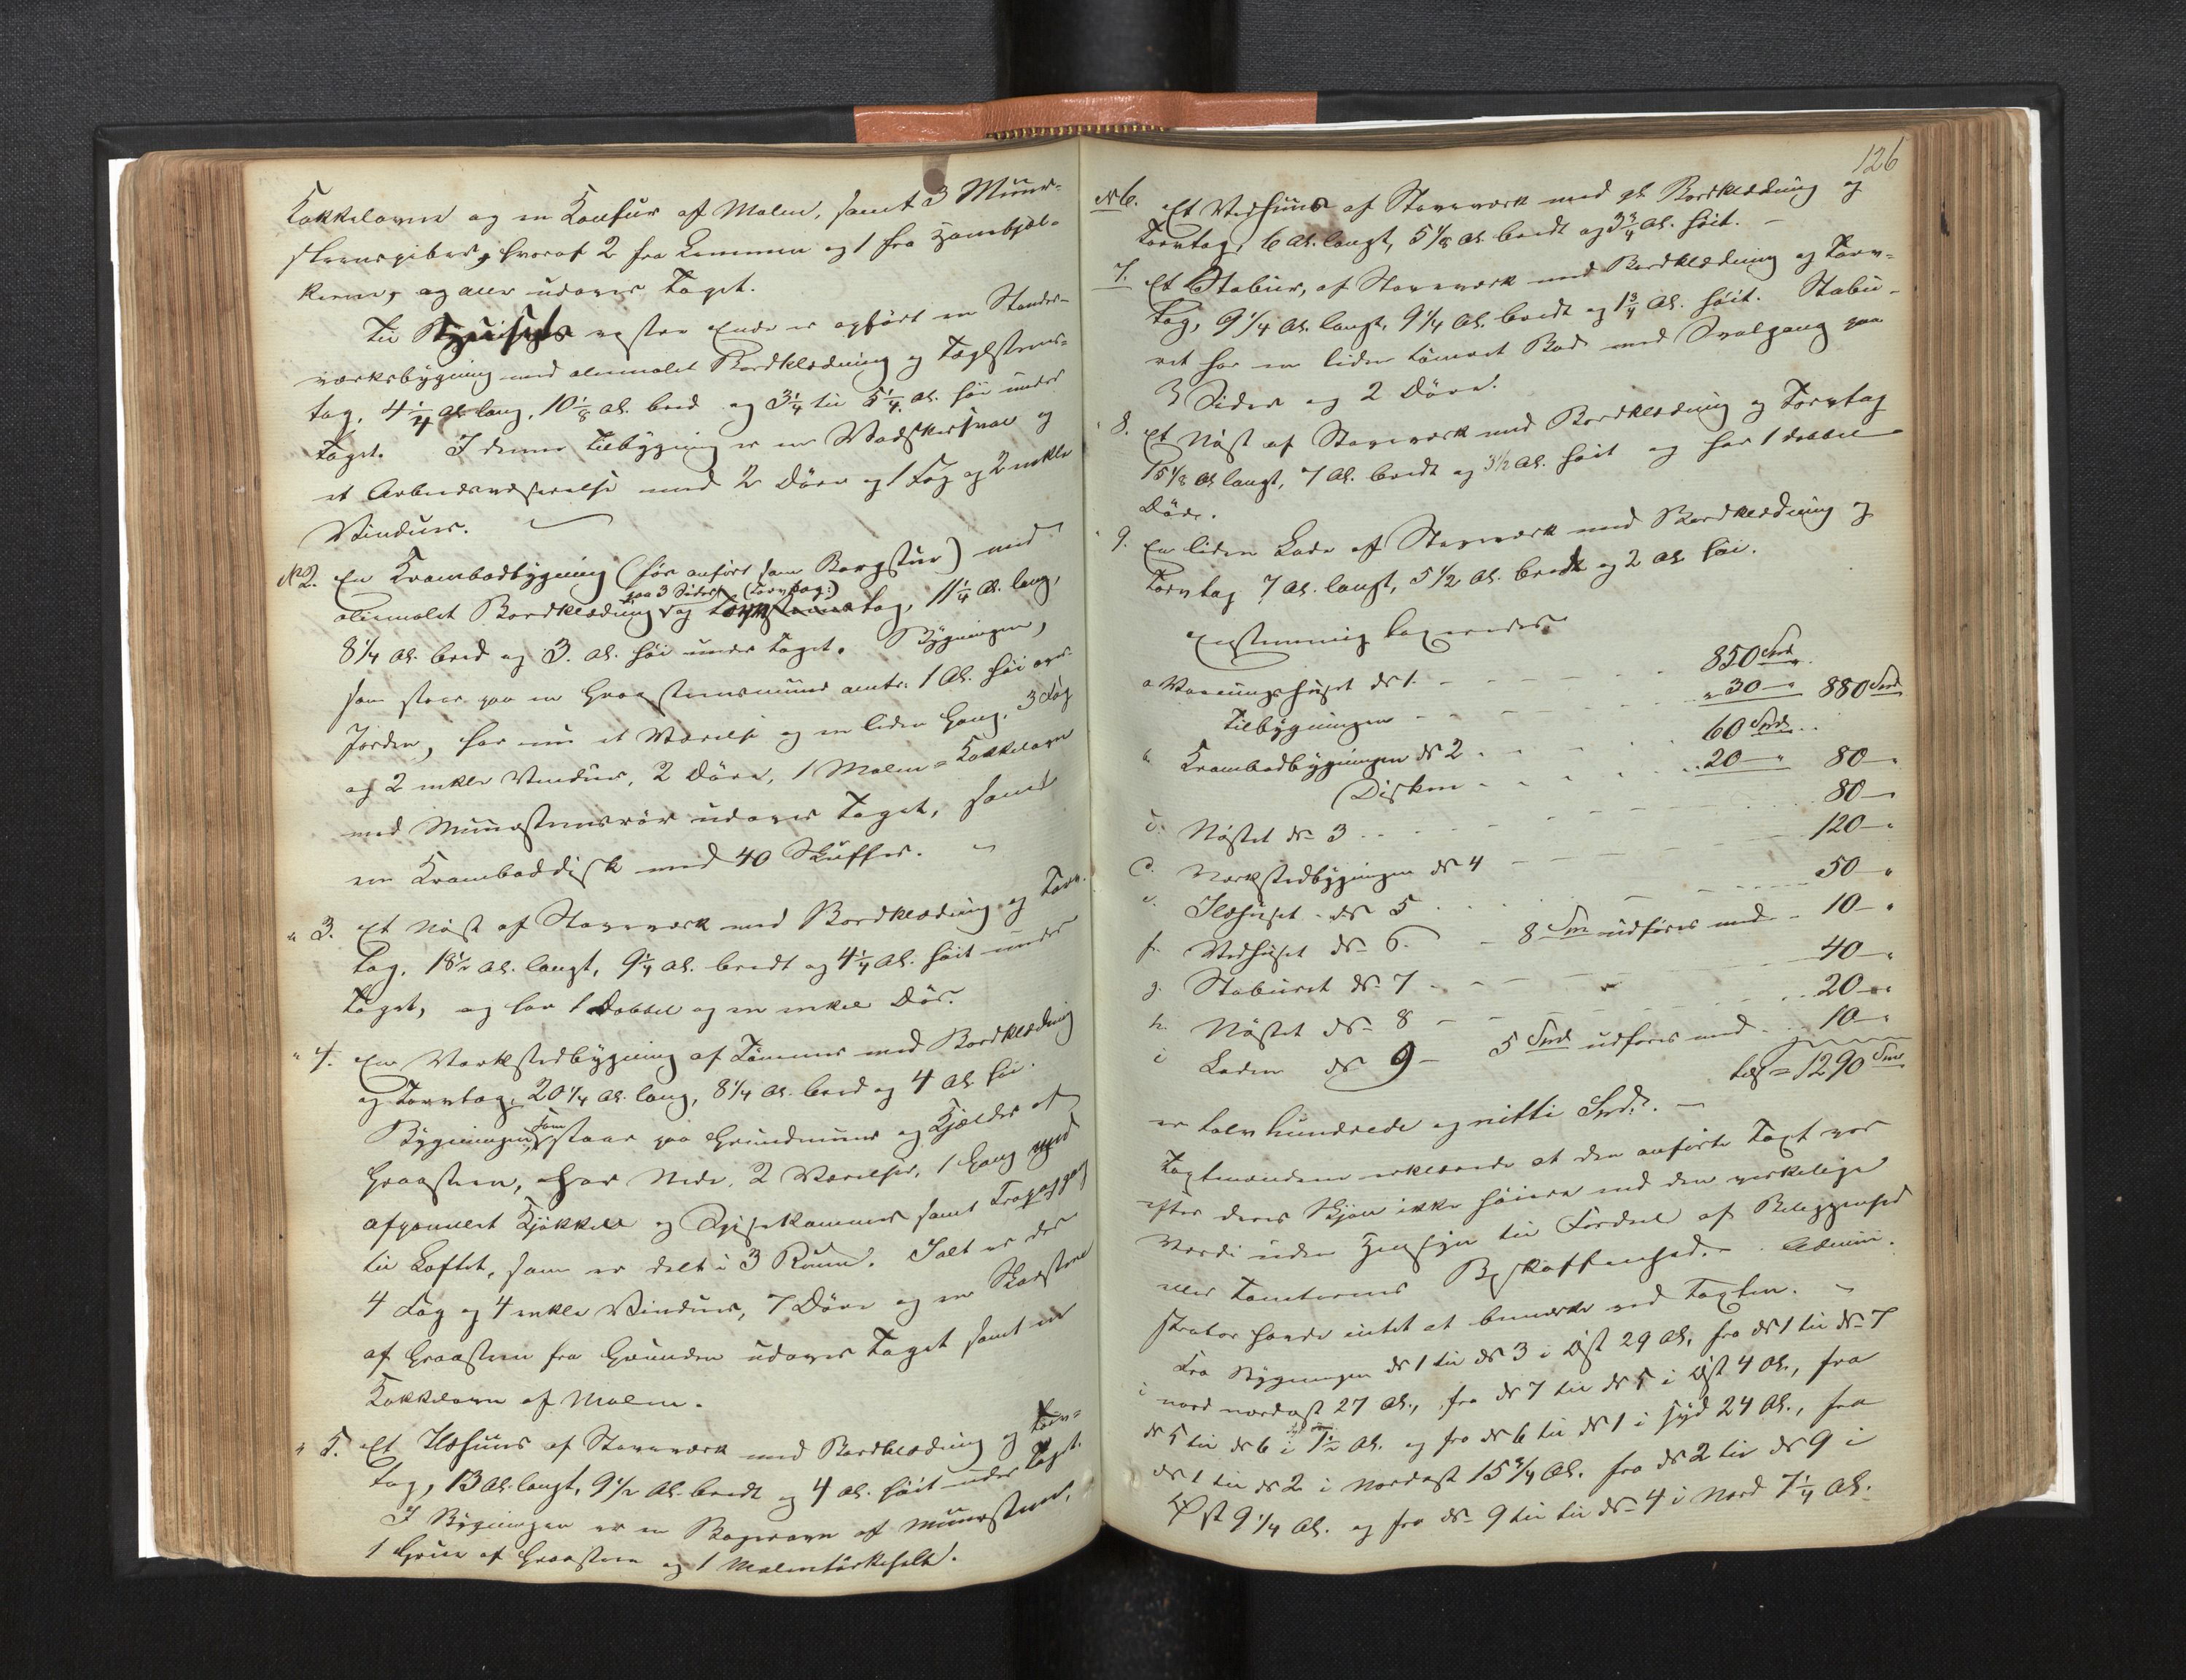 Kakkelovne og en Komfur af Malm, samt 3 Muur-
steenspiber, hvoraf 2 fra Lemmen og 1 fra Hanebjæl-
kerne, og alle udover Taget.
Til Huusets vestre Ende er opført en Stander-
værksbygning med oliemalet Bordklædning og Taglsteens-
tag, 4 1/4 Al. lang, 10 1/8 Al. bred og 3 1/4 til 5 1/4 Al. høi under
Taget. I denne Tilbygning er en Vadskersval og
et Arbeidsværelse med 2 Døre og 1 Fag og 2 enkle
Vinduer.
No 2. En Krambodbygning (før anført som Borgstue) med
oliemalet Bordklædning paa 3 Sider og (Torvtag:) tag, 11 1/4 Al. lang,
8 1/4 Al. bred og 3. Al. høi under Taget. Bygningen,
som staar paa en Graasteensmuur omtr. 1 Al. høi over
Jorden, har nu et Værelse og en liden Gang, 3 Fag
og 2 enkle Vinduer, 2 Døre, 1 Malm-Kakkelovn
med Muursteensrør udover Taget, samt
en Kramboddisk med 40 Skuffer.
" 3. Et Nøst af Stavværk med Bordklædning og Torv-
tag, 18 1/2 Al. langt, 9 1/4 Al. bredt og 4 1/4 Al. høit under
Taget, og har 1 Dobbel og en enkel Dør.
" 4. En Værkstedbygning af Tømmer med Bordklædning
og Torvtag, 20 1/4 Al. lang, 8 1/4 Al. bred og 4 Al. høi.
Bygningen, som staar paa Grundmuur og Kjælder af
Graasteen, har Nede, 2 Værelser, 1 Gang med
afpanelet Kjøkken og Spisekammer samt Trapgang
til Loftet, som er delt i 3 Rum. Ialt er der
4 Fag og 4 enkle Vinduer, 7 Døre og en Skorsteen
af Graasteen fra Grunden udover Taget samt en
Kakkelovn af Malm.
" 5. Et Ildhuus af Stavværk med Bordklædning og Torv-
tag, 13 Al. langt, 9 1/2 Al. bredt og 4 Al. høit under Taget.
I Bygningen er en Bagerovn af Muursteen,
1 Grue af Graasteen og 1 Malmtørkehelle.
126
No 6. Et Vedhuus af Stavværk med gl. Bordklædning og
Torvtag, 6 Al. langt, 5 1/8 Al. bredt og 3 3/4 Al. høit.
7. Et Stabuur, af Stavværk med Bordklædning og Torv-
tag, 9 1/4 Al. langt, 9 1/4 Al. bredt og 1 3/4 Al. høit. Stabu-
ret har en liden tømret Bod med Svalgang paa
3 Sider og 2 Døre.
8. Et Nøst af Stavværk med Bordklædning og Torvtag
15 1/8 Al. langt, 7 Al. bredt og 3 1/2 Al. høit og har 1 dobbel
Dør.
9. En liden Lade af Stavværk med Bordklædning og
Torvtag 7 Al. langt, 5 1/2 Al. bredt og 2 Al. høi.
Enstemmig taxeredes
a Vaaningshuset No 1. 850 Spd.
Tilbygningen " 30 — 880 Spd.
b. Krambodbygningen No 2 60 Spd.
Disken 20 — " 80 — "
c. Nøstet No 3 80 — "
d. Værkstedbygningen No 4 120 — "
e. Ildhuset No 5 50 — "
f. Vedhuset No 6. 8 Spd. udføres med 10 — "
g. Staburet No 7 40 — "
h. Nøstet No 8 20 — "
i Laden No 9 — 5 Spd. udføres med 10 — "
Tils = 1290 Spd.
er tolv hundrede og nitti Spd.
Taxtmændene erklærede at den anførte Taxt var
efter deres Skjøn ikke høiere end den virkelige
Værdi uden Hensyn til Fordeel af Beliggenhed
eller Tomternes Beskaffenhed. Admini-
strator havde intet at bemærke ved Taxten.
Fra Bygningen No 1 til No 3 i Øst 29 Al., fra No 1 til No 7
i nord nordost 27 Al., fra No 7 til No 5 i Øst 4 Al., fra
No 5 til No 6 i 1 1/2 Al. og fra No 6 til No 1 i syd 24 Al., fra
No 1 til No 2 i Nordost 15 3/4 Al. fra No 2 til No 9 i
Øst 9 1/4 Al. og fra No 9 til til No 4 i Nord 7 1/4 Al.